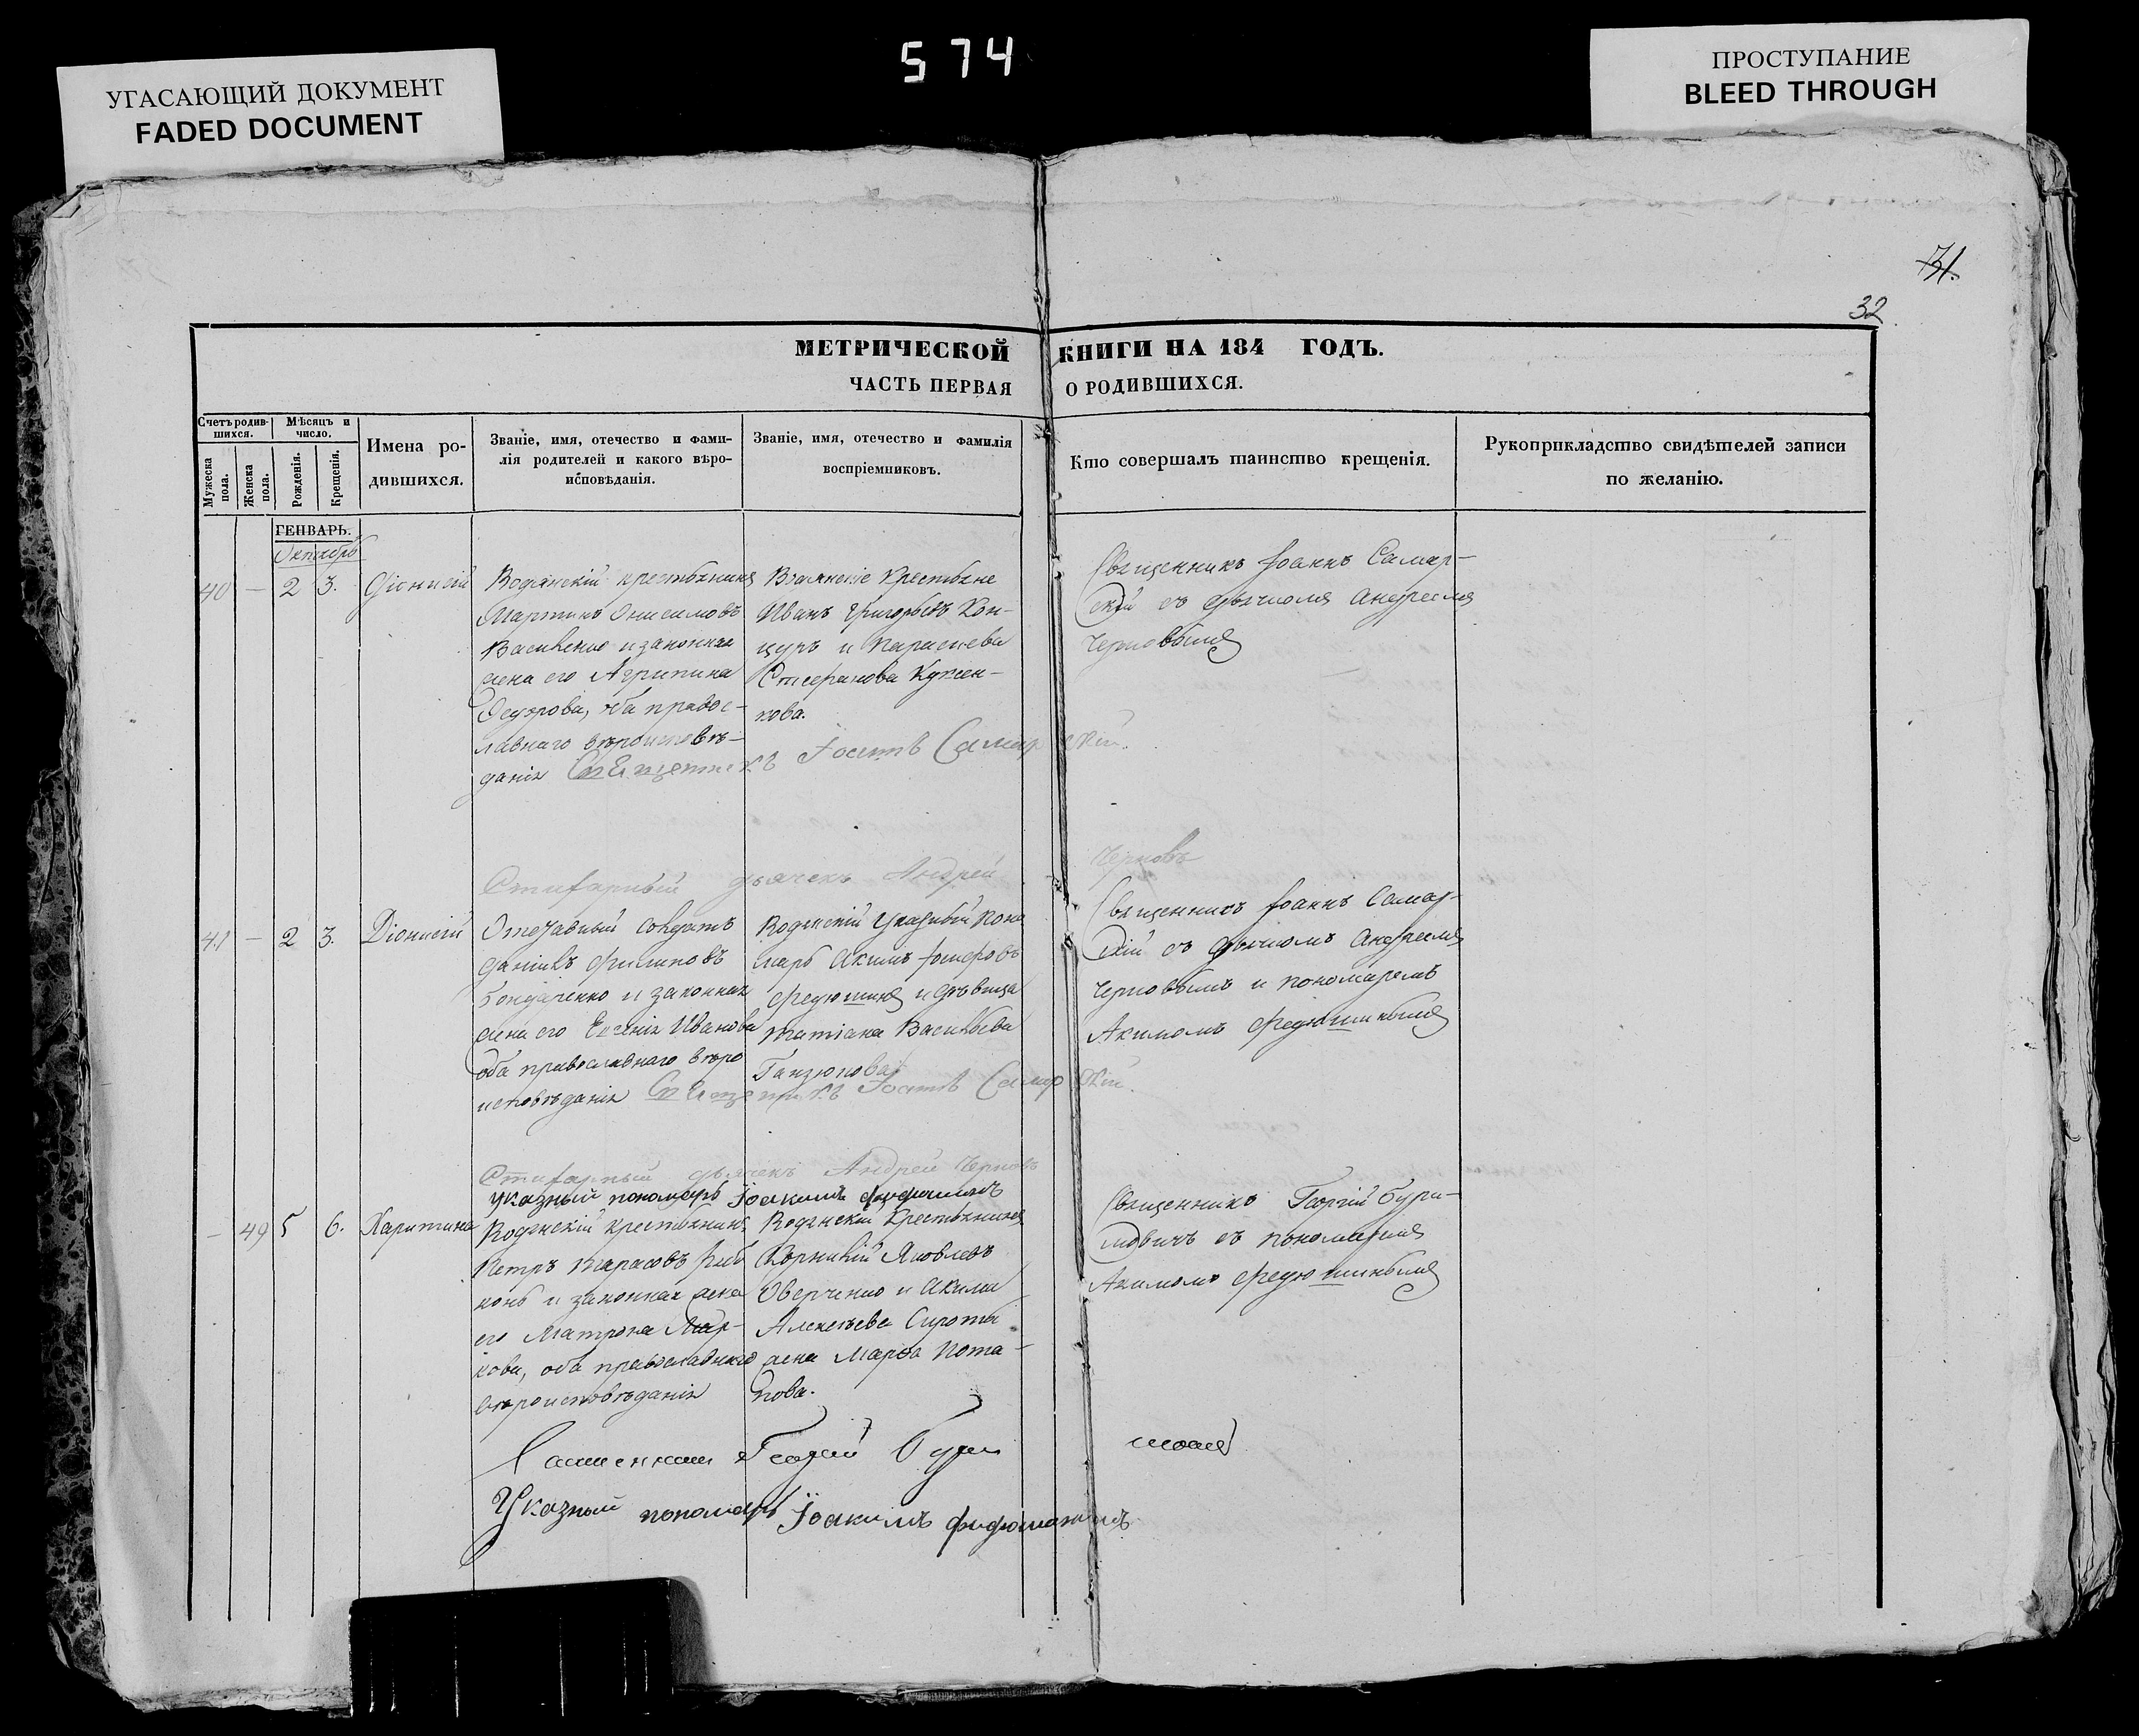 УГАСАЮЩИЙ ДОКУМЕНТ
FADED DOCUMENT
574
ПРОСТУПАНИЕ
BLEED THROUGH
32
МЕТРИЧЕСКОЙ КНИГИ НА 184 ГОДЪ.
ЧАСТЬ ПЕРВАЯ О РОДИВШИХСЯ.
Счетъ родив-
шихся.
Мужеска
пола.
Женска
пола.
Мѣсяцъ и
число.
Рожденія.
Крещенія.
Имена ро-
дившихся.
Званіе, имя, отечество и фами-
лія родителей и какого вѣро-
исповѣданія.
Званіе, имя, отечество и фамилія
воспріемниковъ.
Кто совершалъ таинство крещенія.
Рукоприкладство свидѣтелей записи
по желанію.
ГЕНВАРЬ.
Октябрь
40 — 2 3. Діонисій
Водянскій крестьянинъ
Мартинъ Онисимовъ
и законная
жена его Агрипина
Федорова, оба правос-
лавнаго вѣроисповѣ-
данія
крестьяне
Иванъ Григорьевъ Кон-
цуръ и Параскева
Стефанова
кова.
Священникъ Іоаннъ Самар-
скій съ дьячкомъ Андреемъ
Черновымъ
Священникъ Іоаннъ Самарскій.
дьячекъ Андрей Черновъ
41 — 2 3. Діонисій
Отставный солдатъ
Даніилъ Филиповъ
Бондаренко и законная
жена его Евгенія Иванова
оба православнаго вѣро
исповѣданія
Водянскій Указный поно
марь Акимъ
Федюшинъ и дѣвица
Татіана Васильева
Ганзюкова
Священникъ Іоаннъ Самар-
скій съ дьячкомъ Андреемъ
Черновымъ и пономаремъ
Акимомъ Федюшинымъ
Священникъ Іоаннъ Самарскій.
дьячекъ Андрей Черновъ
Указный пономарь Іоакимъ Федюшинъ
— 49 5 6. Харитина
Водянскій крестьянинъ
Петръ Тарасовъ
конь и законная жена
его Матрона Мар-
кова, оба православнаго
вѣроисповѣданія
Водянскій Крестьянинъ
Корнилій Яковлевъ
Оверченко и Акима
Алексѣева Сироты
жена Марфа Пота-
пова.
Священникъ Георгій Бури-
мовичъ съ пономаремъ
Акимомъ Федюшинымъ
Священникъ Георгій Бури
Указный пономарь Іоакимъ